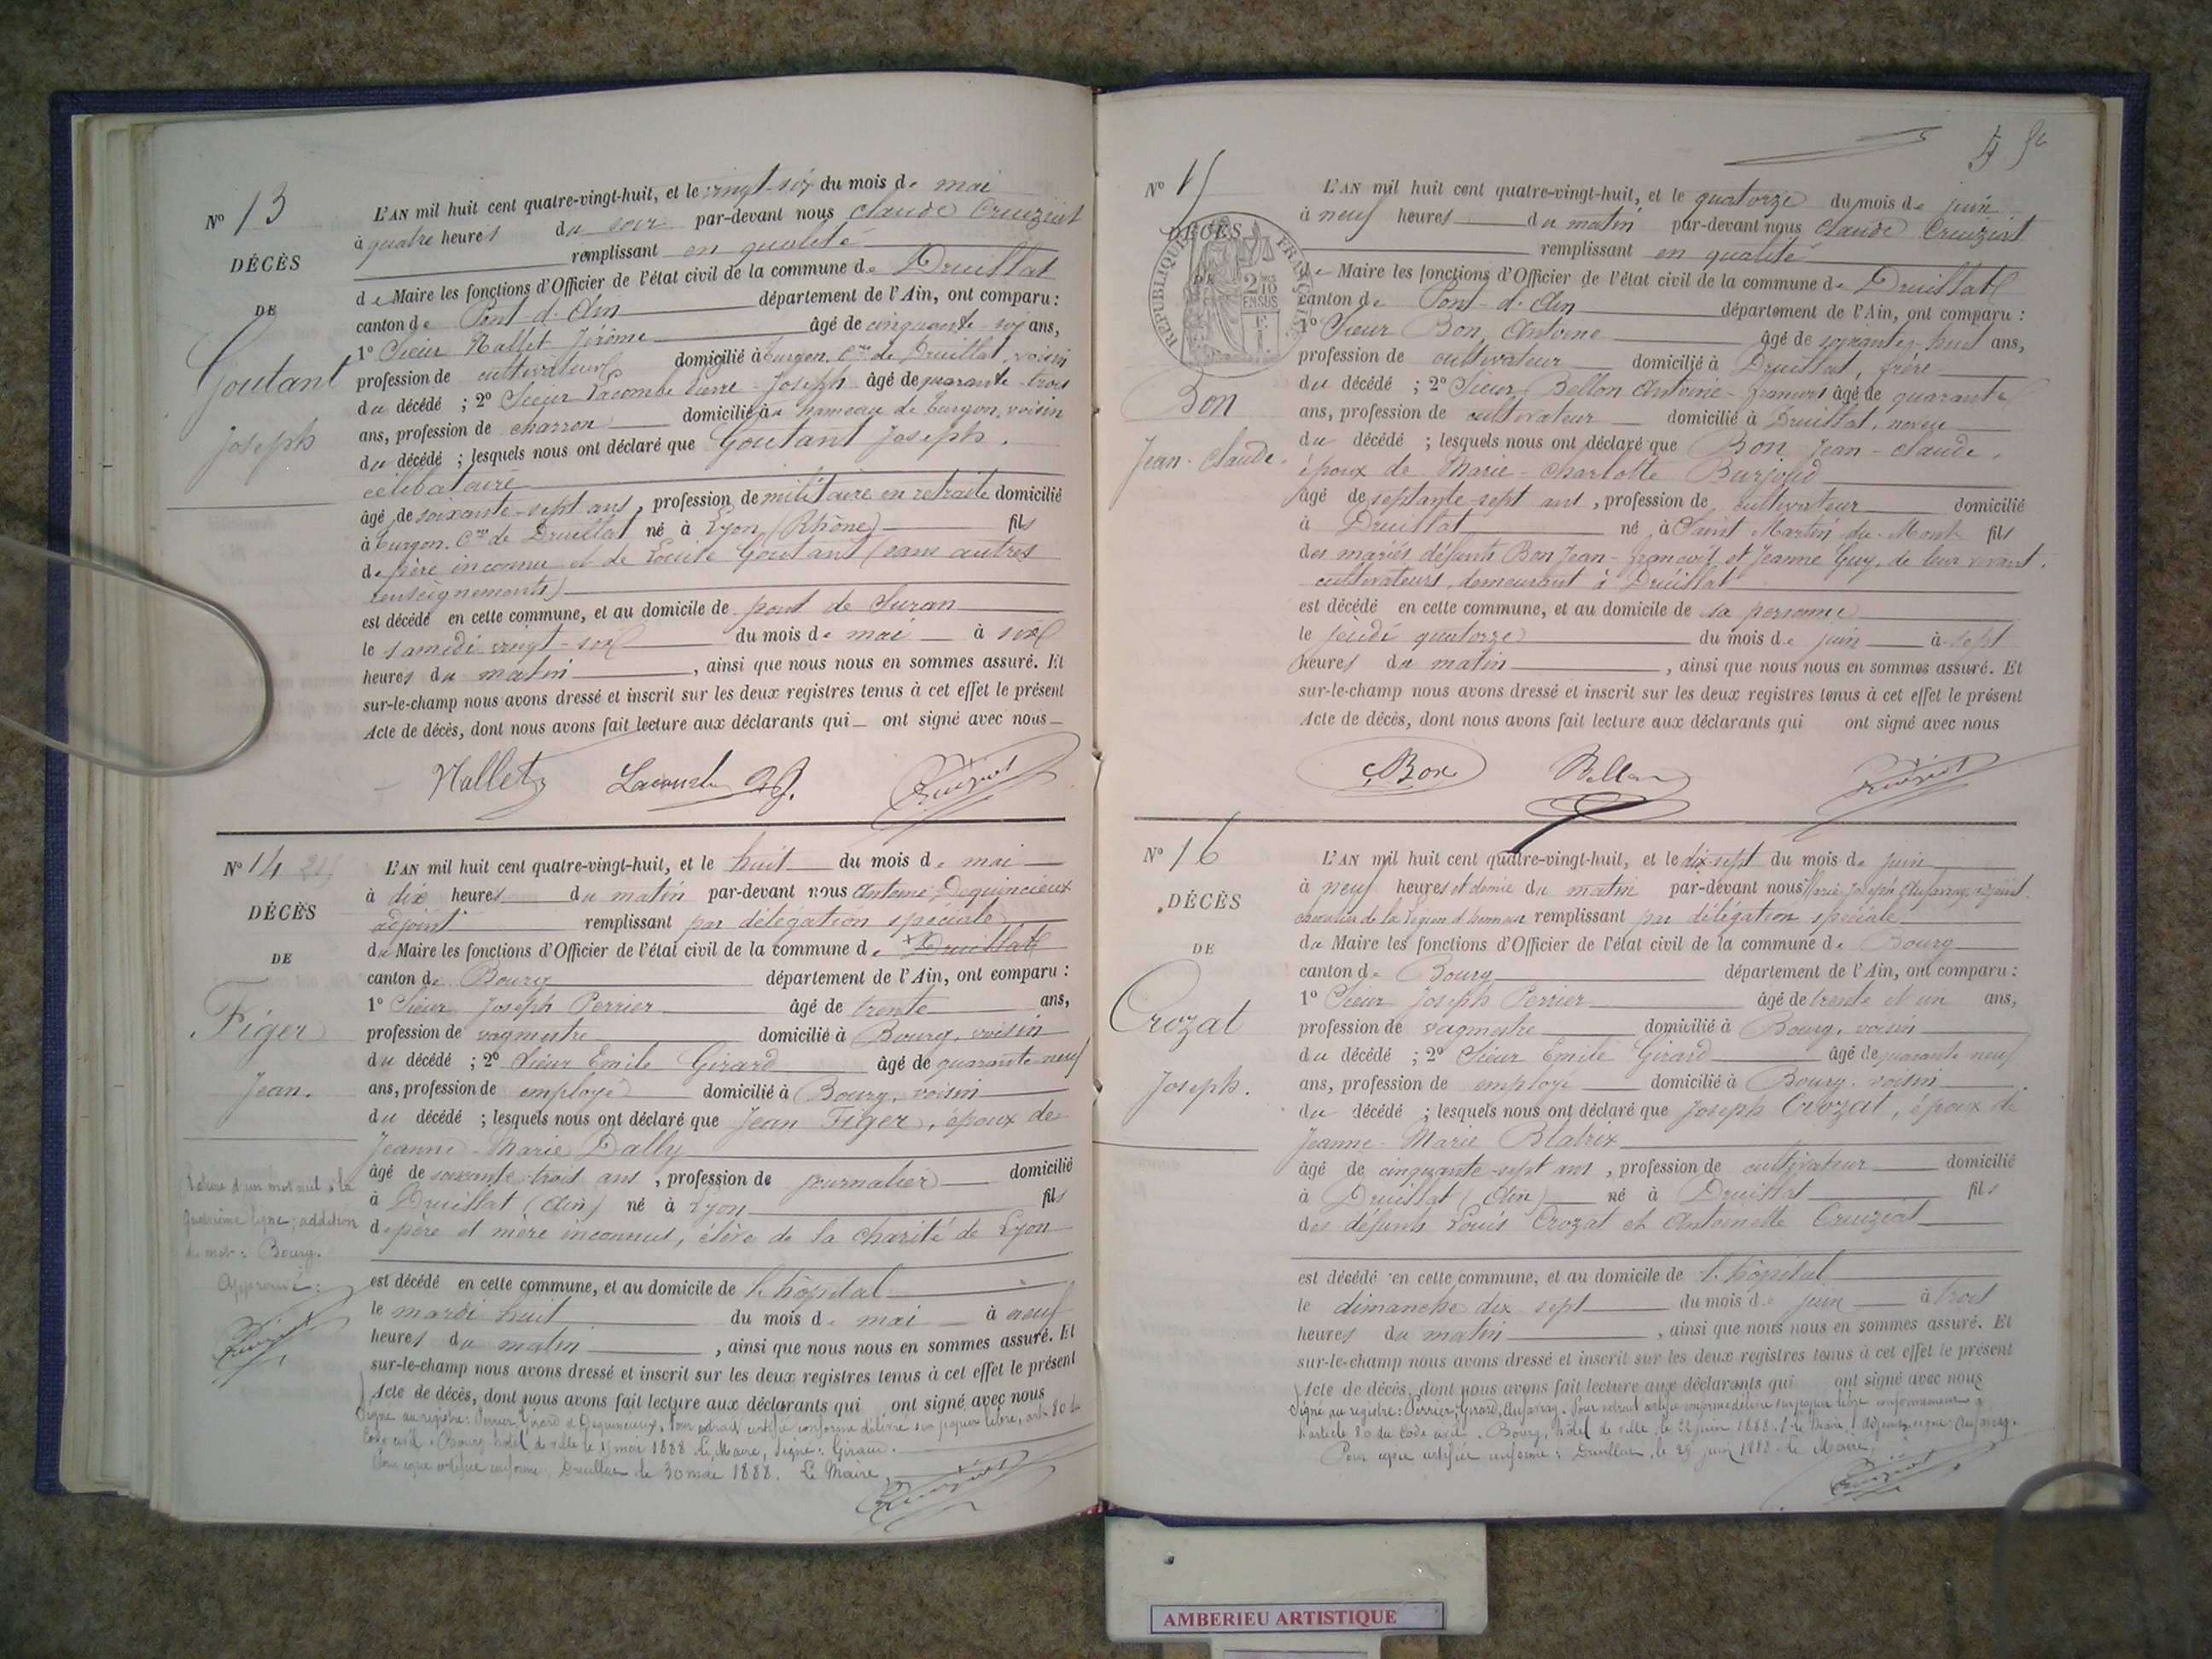 N° 13
DÉCÈS
DE
Goutant
Joseph
L'AN mil huit cent quatre-vingt-huit, et le vingt-six du mois de mai
à quatre heures du soir par-devant nous Claude Cruziat
remplissant en qualité
de Maire les fonctions d'Officier de l'état civil de la commune de Druillat
canton de Pont-d'Ain département de l'Ain, ont comparu :
1° Sieur Nallet Jérôme âgé de cinquante-six ans,
profession de cultivateur domicilié à Turgon, Cne de Druillat, voisin
du décédé ; 2° Sieur Lacombe Pierre-Joseph âgé de quarante-trois
ans, profession de charron domicilié au hameau de Turgon, voisin
du décédé ; lesquels nous ont déclaré que Goutant Joseph,
célibataire
âgé de soixante-sept ans, profession de militaire en retraite domicilié
à Turgon, Cne de Druillat né à Lyon (Rhône) fils
de père inconnu et de Louise Goutant (sans autres
renseignements)
est décédé en cette commune, et au domicile de pont de Suran
le samedi vingt-six du mois de mai à six
heures du matin, ainsi que nous nous en sommes assuré. Et
sur-le-champ nous avons dressé et inscrit sur les deux registres tenus à cet effet le présent
Acte de décès, dont nous avons fait lecture aux déclarants qui ont signé avec nous
Nallet Cruziat
N° 14
DÉCÈS
DE
Figer
Jean.
L'AN mil huit cent quatre-vingt-huit, et le huit du mois de mai
à dix heures du matin par-devant nous Antoine Dequincieux
adjoint remplissant par délégation spéciale
du Maire les fonctions d'Officier de l'état civil de la commune de Druillat
canton de Bourg département de l'Ain, ont comparu :
1° Sieur Joseph Perrier âgé de trente ans,
profession de vagmestre domicilié à Bourg, voisin
du décédé ; 2° Sieur Emile Girard âgé de quarante-neuf
ans, profession de employé domicilié à Bourg, voisin
du décédé ; lesquels nous ont déclaré que Jean Figer, époux de
Jeanne-Marie Dally
âgé de soixante-trois ans, profession de journalier domicilié
à Druillat (Ain) né à Lyon fils
de père et mère inconnus, élève de la charité de Lyon
est décédé en cette commune, et au domicile de l'hôpital
le mardi huit du mois de mai à neuf
heures du matin, ainsi que nous nous en sommes assuré. Et
sur-le-champ nous avons dressé et inscrit sur les deux registres tenus à cet effet le présent
Acte de décès, dont nous avons fait lecture aux déclarants qui ont signé avec nous
Signé au registre : Perrier, Girard et Dequincieux. Pour extrait certifié conforme délivré sur papier libre, art. 80 du
Code civil. Bourg hôtel de ville le 15 mai 1888 Le Maire, signé : Giraud.
Pour copie certifiée conforme. Druillat le 30 mai 1888. Le Maire,
Cruziat
Rature d'un mot nul à la
quatrième ligne ; addition
du mot : Bourg.
Approuvé :
Cruziat
N° 15
DÉCÈS
DE
Bon
Jean-Claude.
RÉPUBLIQUE FRANÇAISE
L'AN mil huit cent quatre-vingt-huit, et le quatorze du mois de juin
à neuf heures du matin par-devant nous Claude Cruziat
remplissant en qualité
de Maire les fonctions d'Officier de l'état civil de la commune de Druillat
canton de Pont-d'Ain département de l'Ain, ont comparu :
1° Sieur Bon, Antoine âgé de soixante-huit ans,
profession de cultivateur domicilié à Druillat, frère
du décédé ; 2° Sieur Bellon Antoine-François âgé de quarante
ans, profession de cultivateur domicilié à Druillat, neveu
du décédé ; lesquels nous ont déclaré que Bon Jean-Claude,
époux de Marie-Charlotte Burjoud
âgé de septante-sept ans, profession de cultivateur domicilié
à Druillat né à Saint Martin-du-Mont fils
des mariés défunts Bon Jean-François et Jeanne Guy, de leur vivant
cultivateurs, demeurant à Druillat
est décédé en cette commune, et au domicile de sa personne
le jeudi quatorze du mois de juin à sept
heures du matin, ainsi que nous nous en sommes assuré. Et
sur-le-champ nous avons dressé et inscrit sur les deux registres tenus à cet effet le présent
Acte de décès, dont nous avons fait lecture aux déclarants qui ont signé avec nous
Bon Bellon Cruziat
N° 16
DÉCÈS
DE
Crozat
Joseph.
L'AN mil huit cent quatre-vingt-huit, et le dix-sept du mois de juin
à neuf heures et demie du matin par-devant nous Marie Joseph adjoint
chevalier de la Légion d'honneur remplissant par délégation spéciale
du Maire les fonctions d'Officier de l'état civil de la commune de Bourg
canton de Bourg département de l'Ain, ont comparu :
1° Sieur Joseph Perrier âgé de trente et un ans,
profession de vagmestre domicilié à Bourg, voisin
du décédé ; 2° Sieur Emile Girard âgé de quarante-neuf
ans, profession de employé domicilié à Bourg, voisin
du décédé ; lesquels nous ont déclaré que Joseph Crozat, époux de
Jeanne-Marie Blatrix
âgé de cinquante-sept ans, profession de cultivateur domicilié
à Druillat (Ain) né à Druillat fils
des défunts Louis Crozat et Antoinette Cruziat
est décédé en cette commune, et au domicile de l'hôpital
le dimanche dix sept du mois de juin à trois
heures du matin, ainsi que nous nous en sommes assuré. Et
sur-le-champ nous avons dressé et inscrit sur les deux registres tenus à cet effet le présent
Acte de décès, dont nous avons fait lecture aux déclarants qui ont signé avec nous
Signé au registre : Perrier, Girard, Pour extrait certifié conforme délivré sur papier libre conformément à
l'article 80 du Code civil. Bourg, hôtel de ville, le 22 juin 1888.
Pour copie certifiée conforme : Druillat, le 29 juin 1888. Le Maire,
Cruziat
AMBERIEU ARTISTIQUE